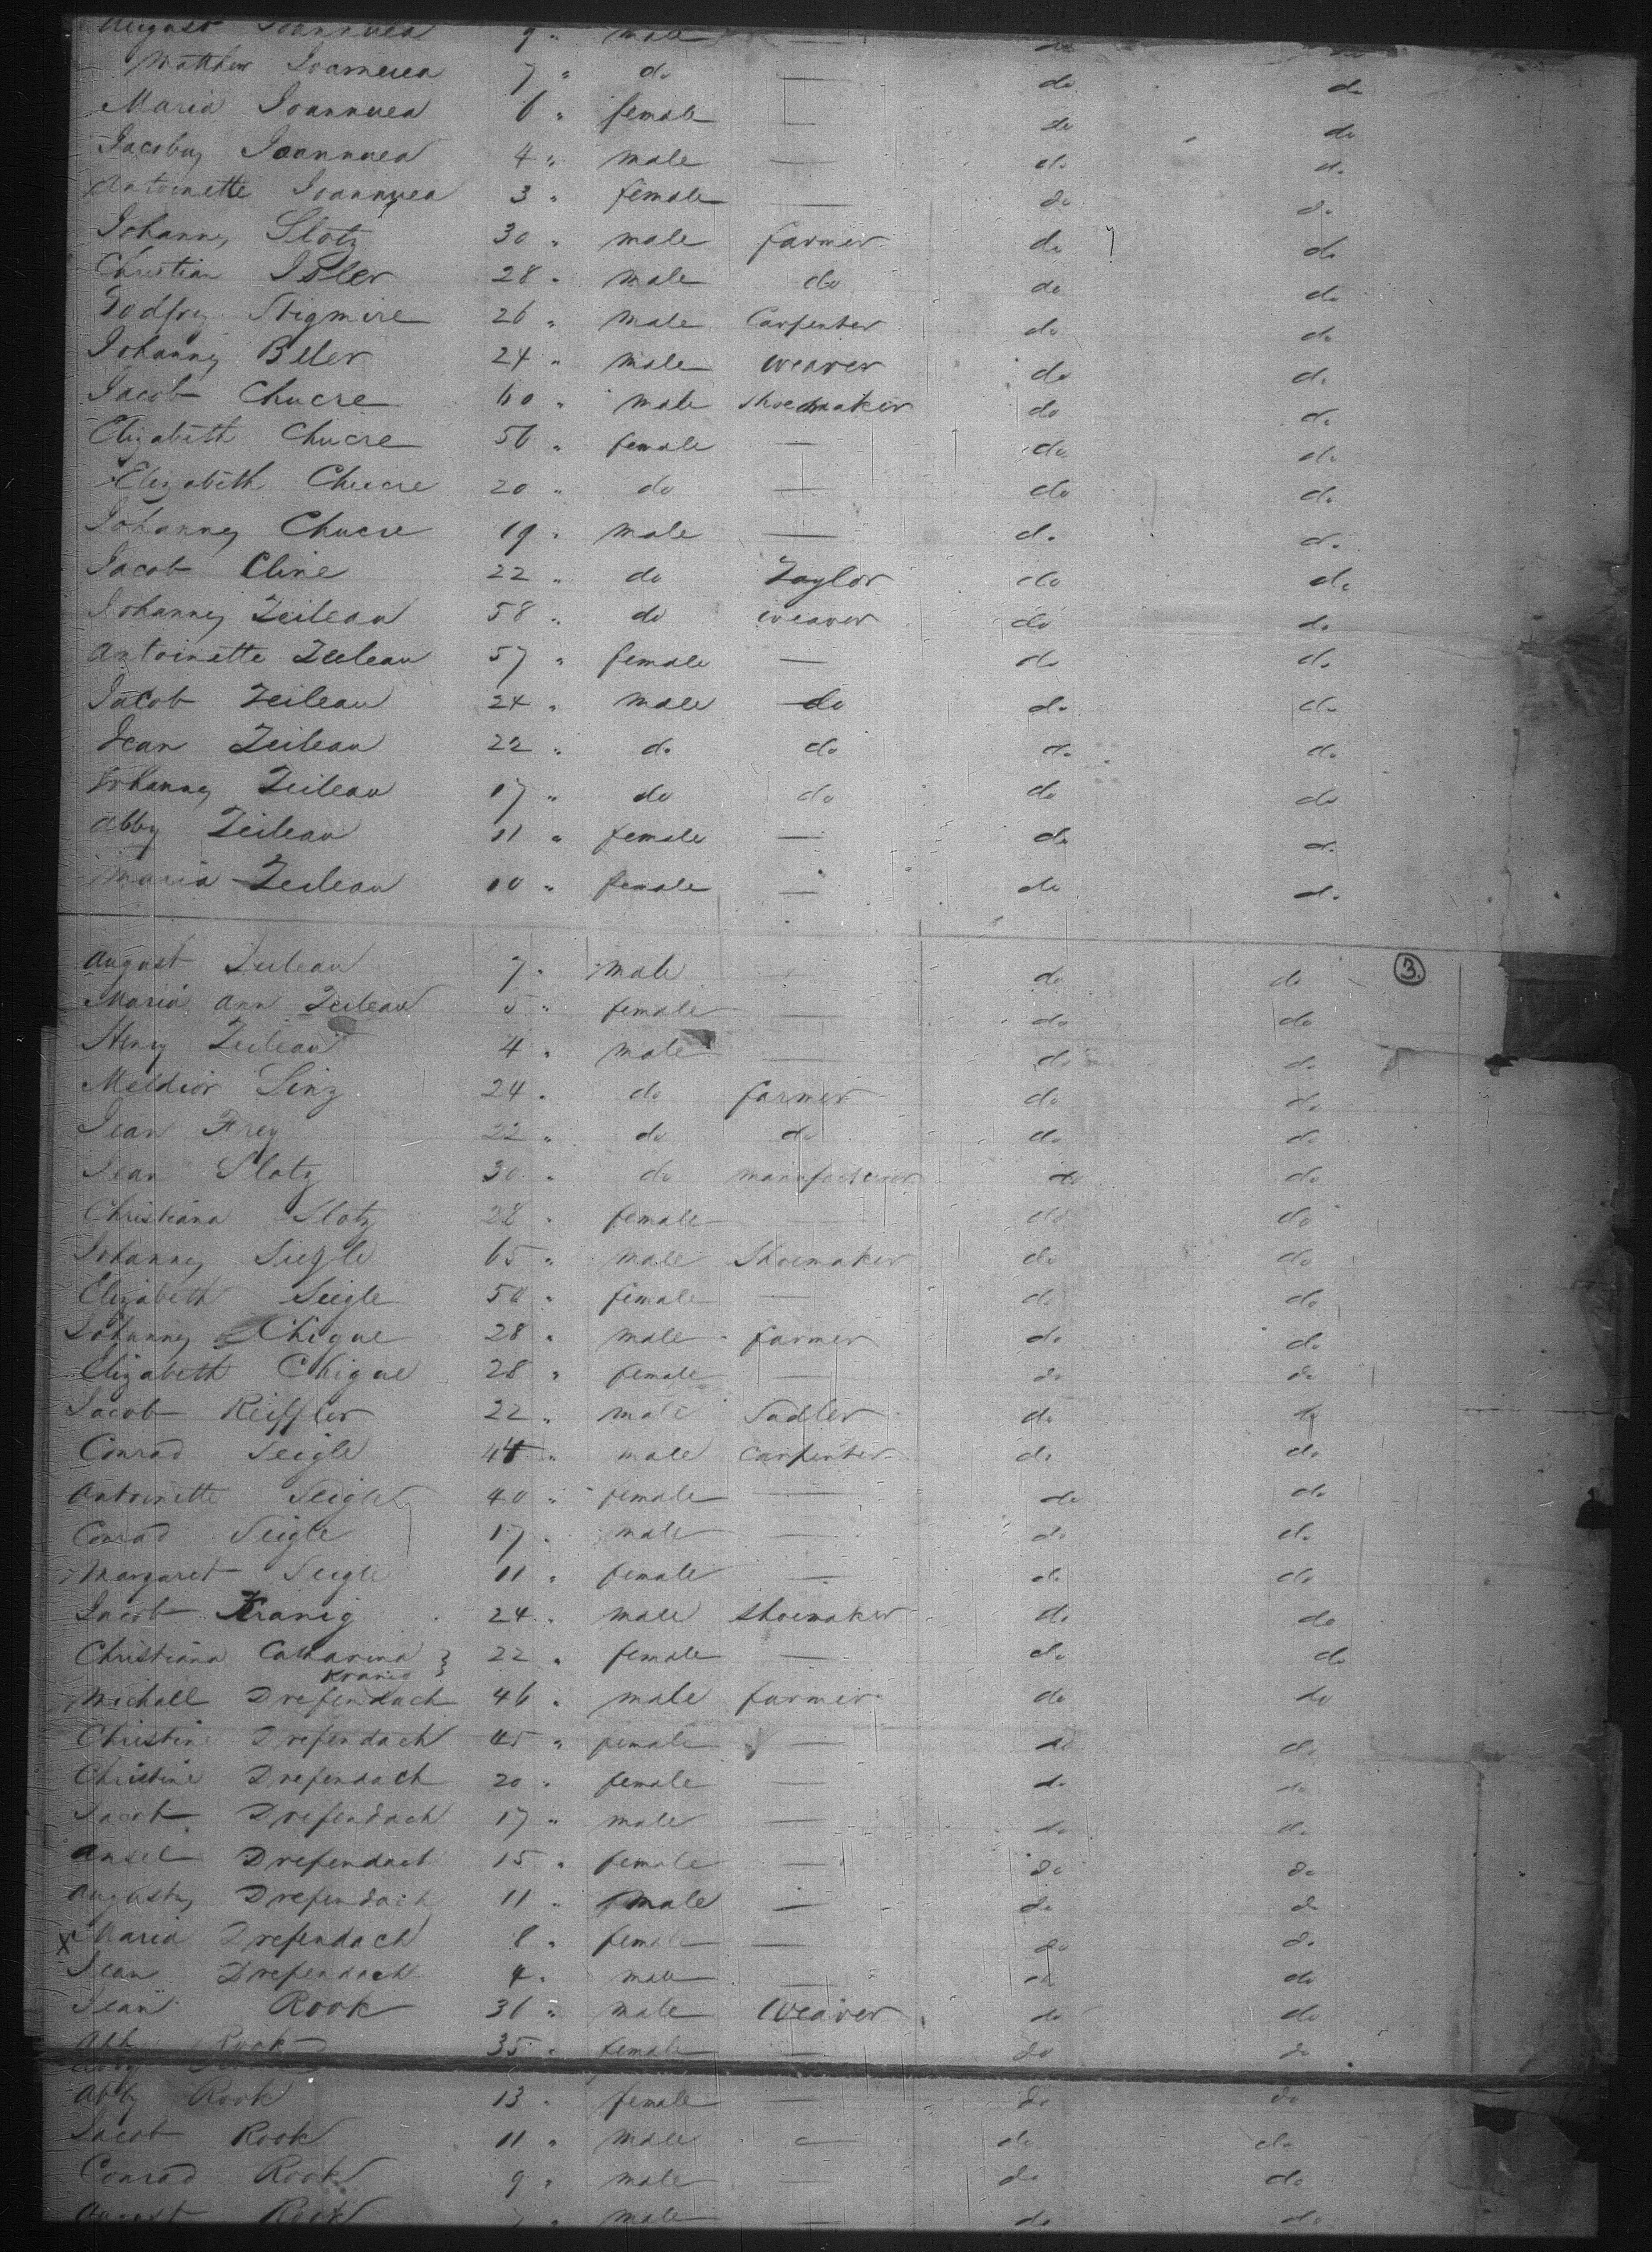 August Ioannuea 9 " male — do do
Matthew Ioannuea 7 " do — do do
Maria Ioannuea 6 " female — do do
Jacobus Ioannuea 4 " male — do do
Antoinette Ioannuea 3 " female — do do
Johannes Slotz 30 " male farmer do do
Christian Isler 28 " male do do do
Godfrey Stigmire 26 " male Carpenter do do
Johannes Beler 24 " male weaver do do
Jacob Chucre 60 " male Shoemaker do do
Elizabeth Chucre 56 " female — do do
Elizabeth Chucre 20 " do — do do
Johannes Chucre 19 " male — do do
Jacob Cline 22 " do Taylor do do
Johannes Zeileau 58 " do weaver do do
Antoinette Zeileau 57 " female — do do
Jacob Zeileau 24 " male do do do
Jean Zeileau 22 " do do do do
Johannes Zeileau 17 " do do do do
Abby Zeileau 11 " female — do do
Maria Zeileau 10 " female — do do
3.
August Zeileau 7 " male do do
Maria Ann Zeileau 5 " female — do do
Henry Zeileau 4 " male — do do
Meldior Sinz 24 " do farmer do do
Jean Frey 22 " do do do do
Jean Slotz 30 " do manufacturer do do
Christiana Slotz 28 " female — do do
Johannes Siegle 65 " male Shoemaker do do
Elizabeth Seigle 50 " female — do do
Johannes Chigue 28 " male farmer do do
Elizabeth Chigue 28 " female — do do
Jacob Reiffler 22 " male Sadler do do
Conrad Seigle 44 " male Carpenter do do
Antoinette Seigle 40 " female — do do
Conrad Seigle 17 " male — do do
Margaret Seigle 11 " female — do do
Jacob Kranig 24 " male Shoemaker do do
Christiana Catharina } 22 " female — do do
Kranig
Michall Drefendach 46 " male farmer do do
Christine Drefendach 45 " female — do do
Christine Drefendach 20 " female — do do
Jacob Drefendach 17 " male — do do
Ansel Drefendach 15 " female — do do
Augustus Drefendach 11 " male — do do
x Maria Drefendach 8 " female — do do
Jean Drefendach 4 " male — do do
Jean Rook 36 " male Weaver do do
Abby Rook 35 " female — do do
Abby Rook 13 " female — do do
Jacob Rook 11 " male — do do
Conrad Rook 9 " male — do do
August Rook " male — do do